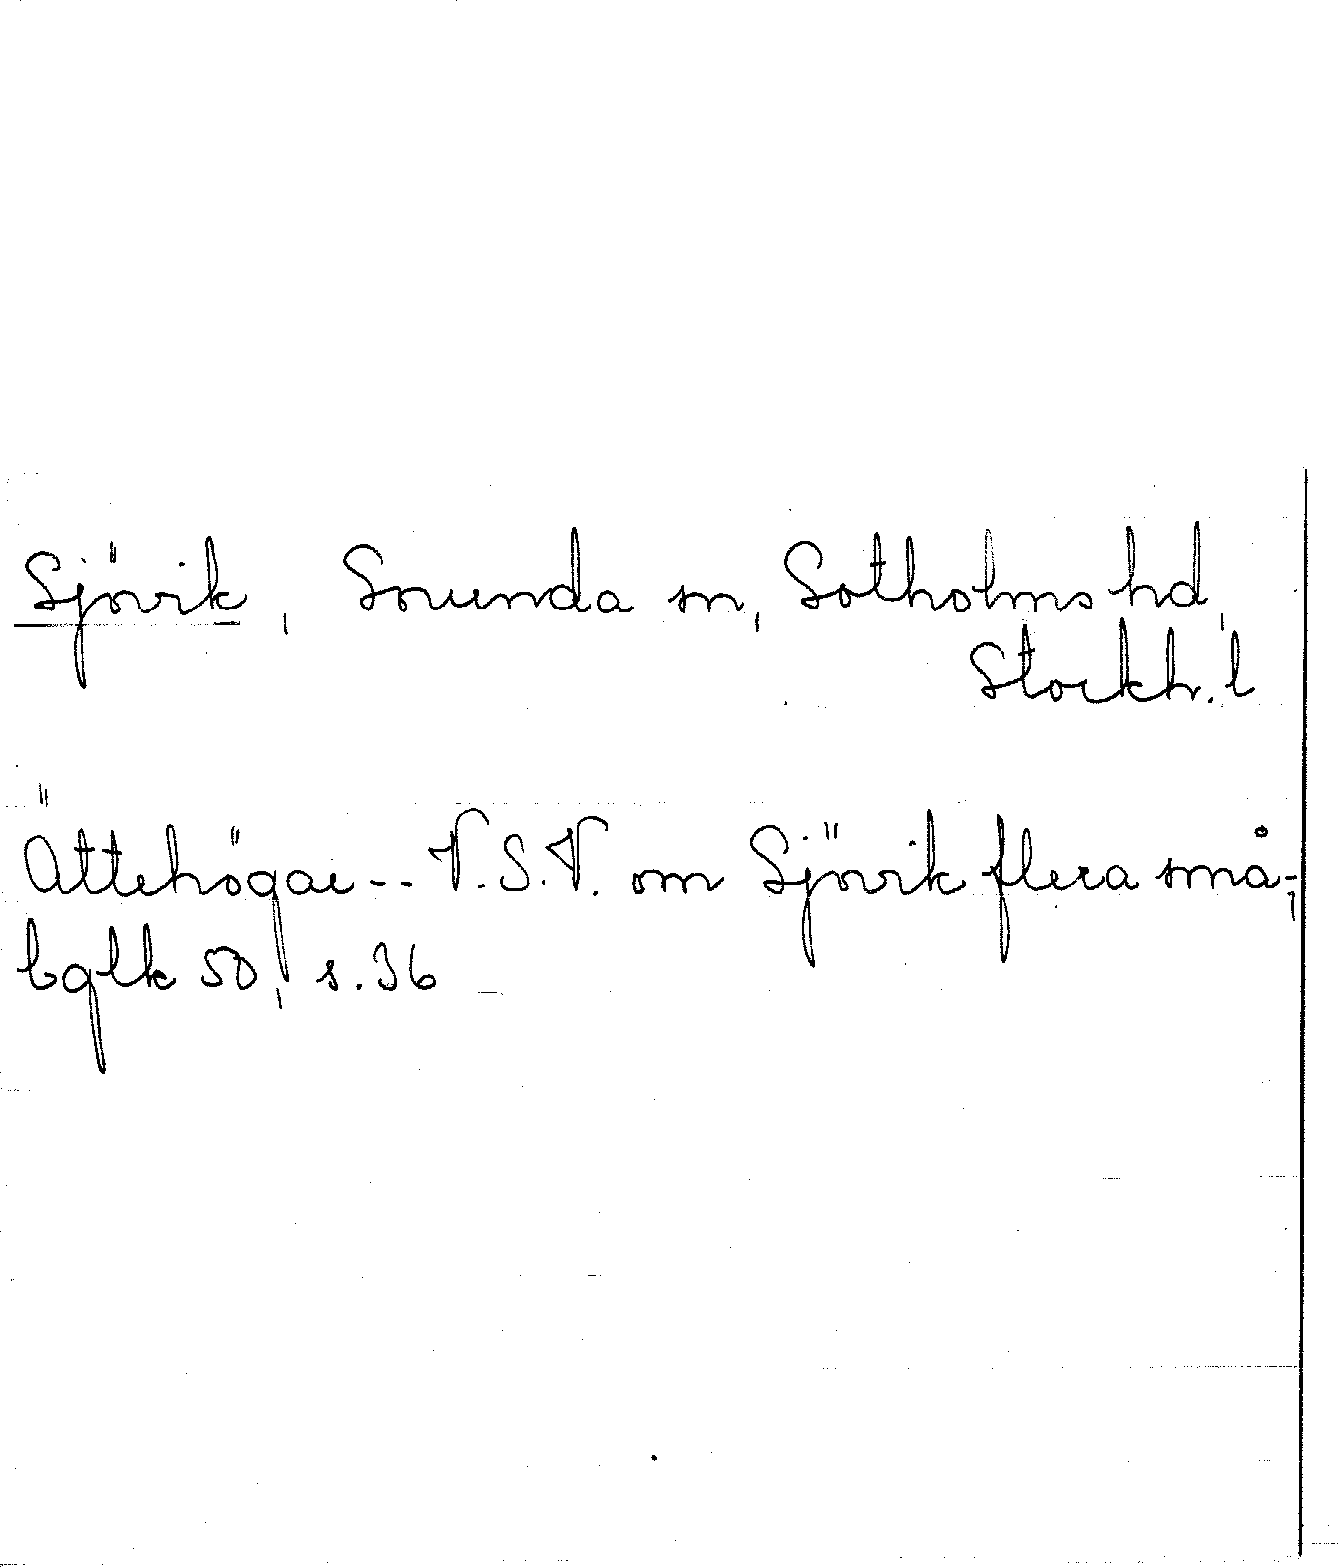 Sjövik, Sorunda sn, Sotholms hd,
Stockh. l
Ättehögar -- V. S. V. om Sjövik flera små;
bglk 50, s. 36